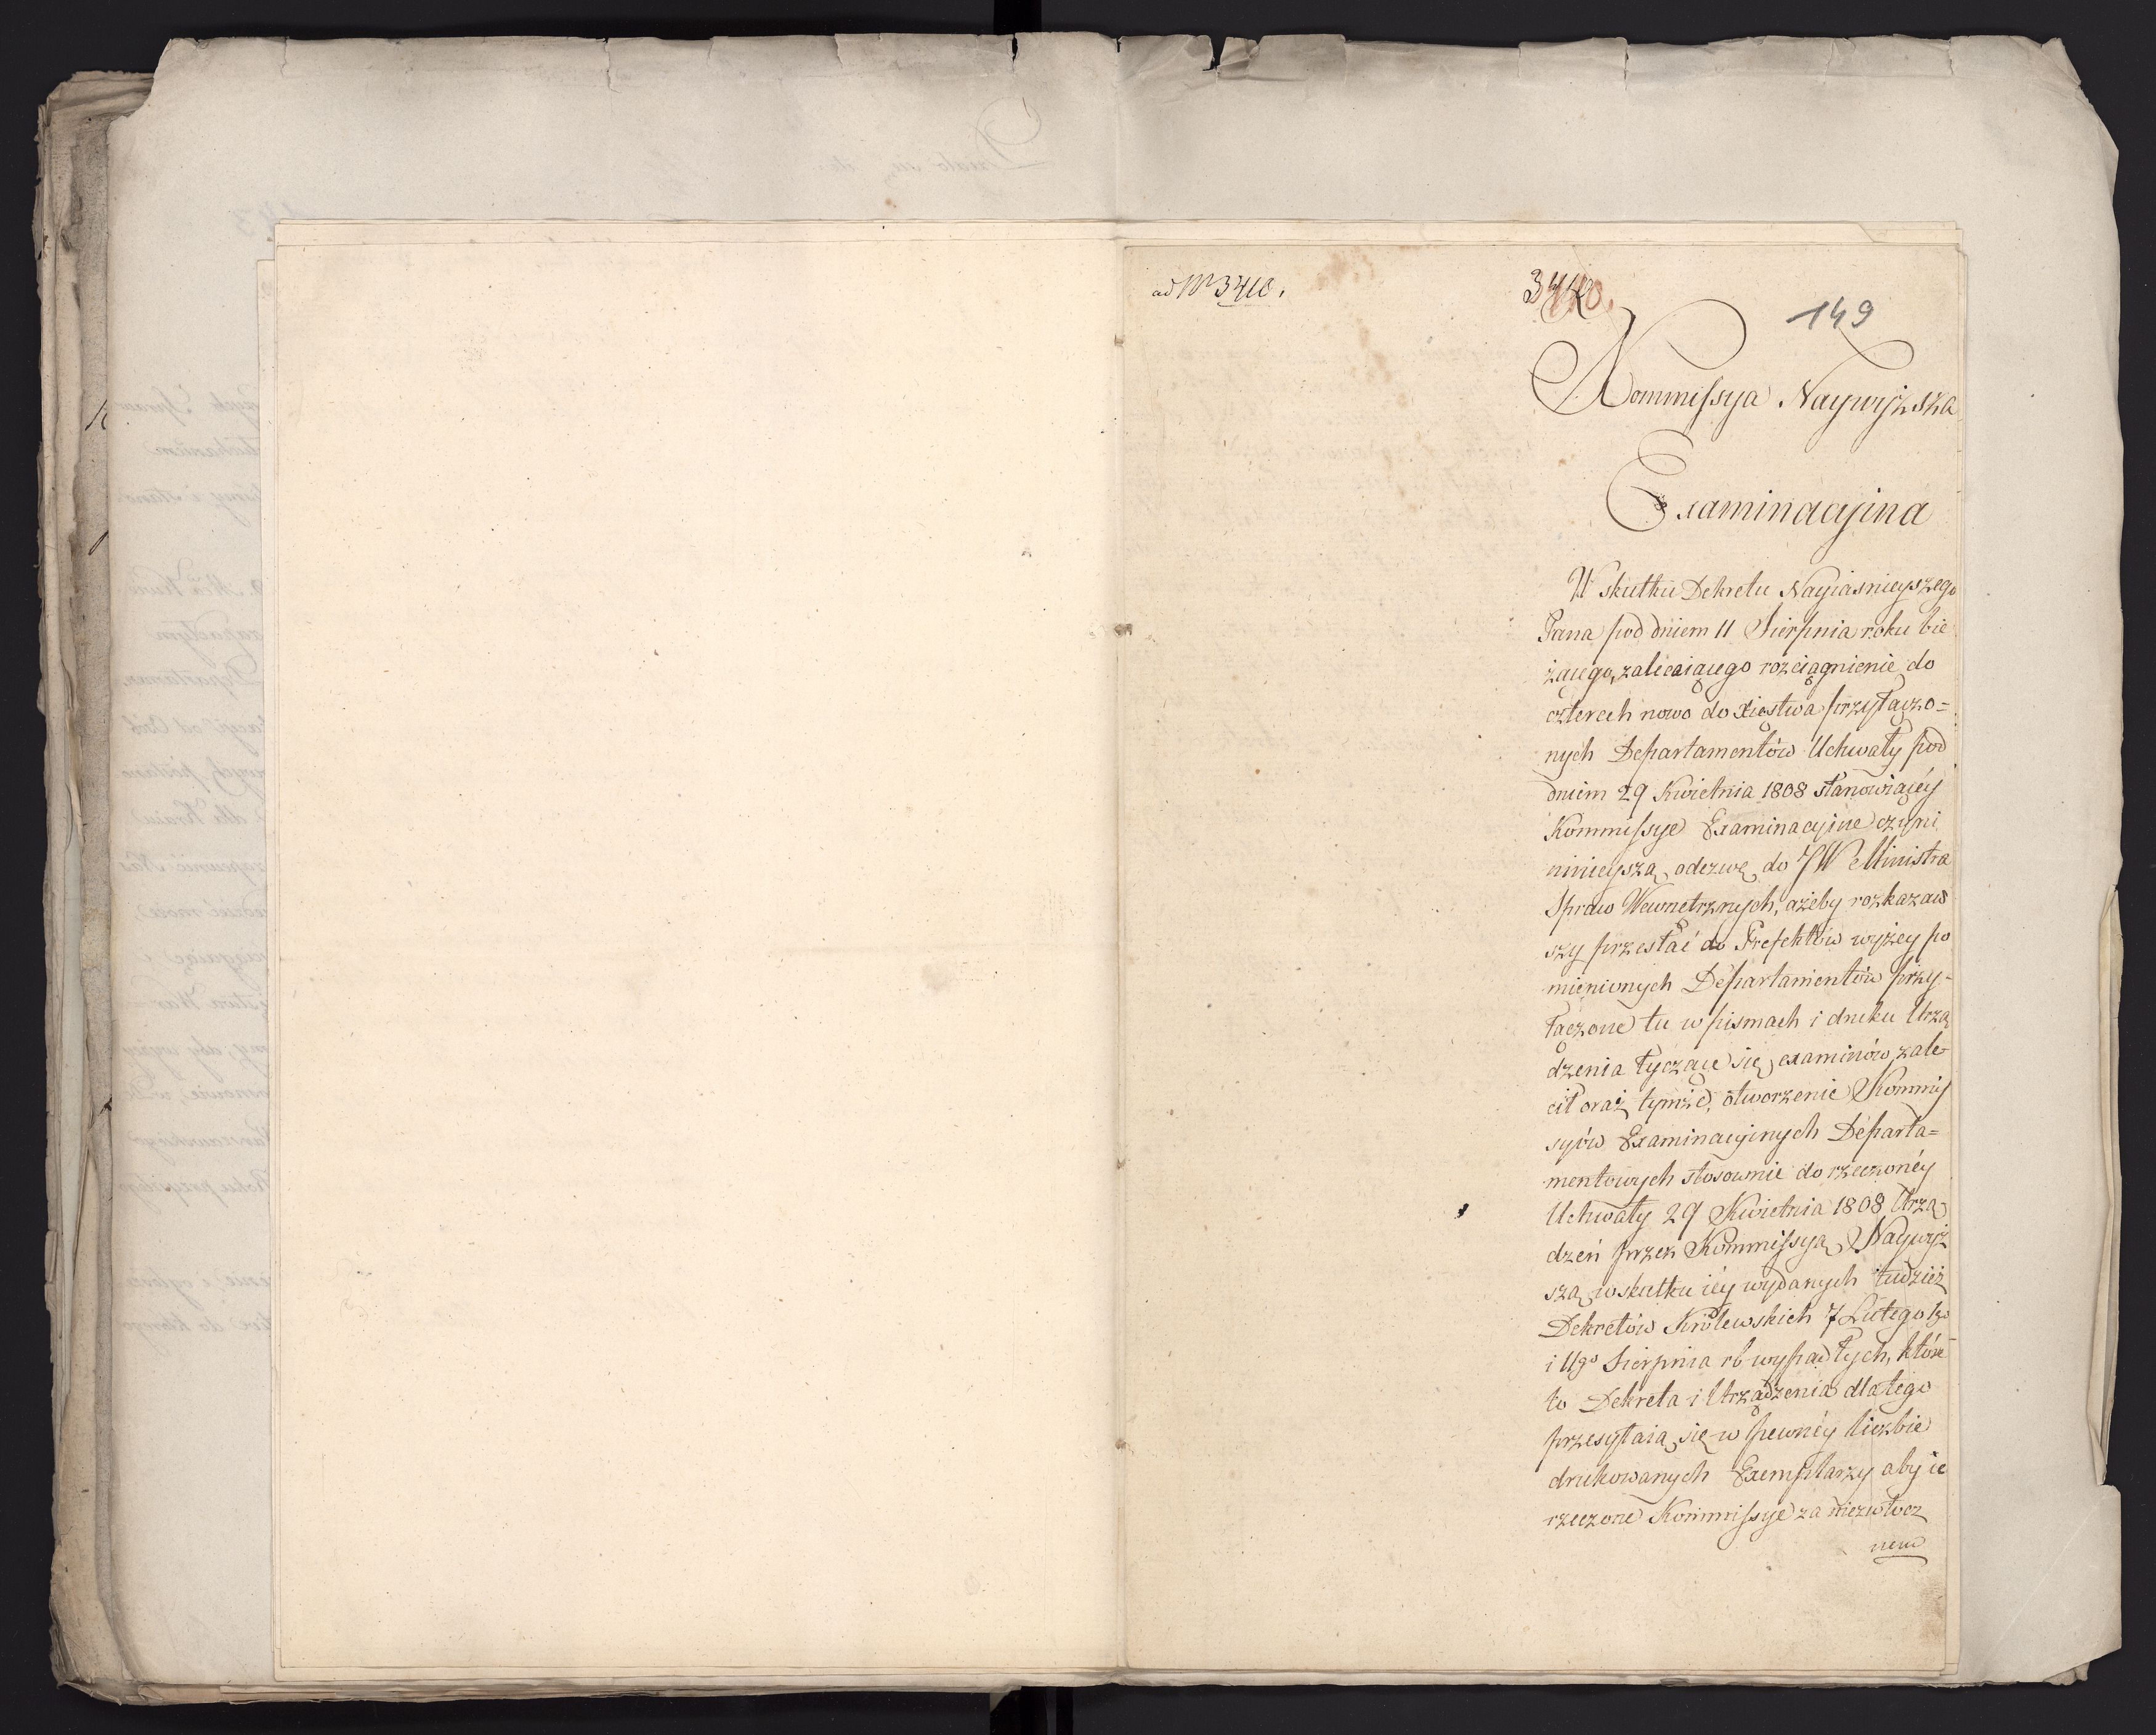 ad Nr 3410.
149
Kommissya Naywyższa
Examinacyina
W skutku Dekretu Nayiaśnieyszego
Pana pod dniem 11 Sierpnia roku bie
żącego, zalecaiącego rozciągnienie do
czterech nowo do Xięstwa przyłączo=
nych Departamentów Uchwały pod
dniem 29 Kwietnia 1808 stanowiącéy
Kommissye Examinacyine czyni
ninieyszą odezwę do JW Ministra
Spraw Wewnętrznych, ażeby rozkazaw
szy przesłać do Prefektów wyżey po
mienionych Departamentów przy=
łączone tu w pismach i druku Urzą
dzenia tyczące się examinów, zale
cił oraz tymże, otworzenie Kommis
syiów Examinacyinych Departa=
mentowych stosownie do rzeczonéy
Uchwały 29 Kwietnia 1808 Urzą
dzeń przez Kommissyą Naywyż
szą w skutku iéy wydanych tudzież
Dekretów Królewskich 7 Lutego
i 11go Sierpnia rb wypadłych, które
to Dekreta i Urządzenia dla tego
przesyłaią się w pewnéy liczbie
drukowanych Exemplarzy aby ie
rzeczone Kommissye za niezwłocz
nem